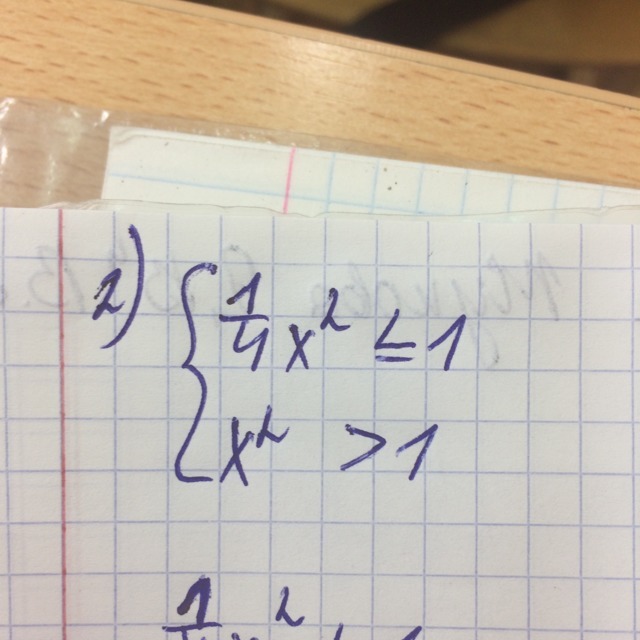 2) { 1/4 x² ≤ 1
x² > 1